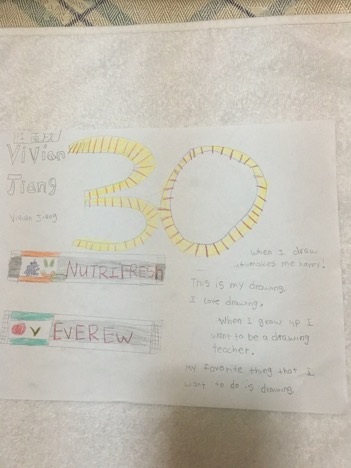 ViVian
Jiang
Vivian Jiang
30
NUTRIFRESH
EVEREW
When I draw
it makes me happy!
This is my drawing
I love drawing.
When I grow up I
want to be a drawing
teacher.
My favorite thing that I
want to do is drawing